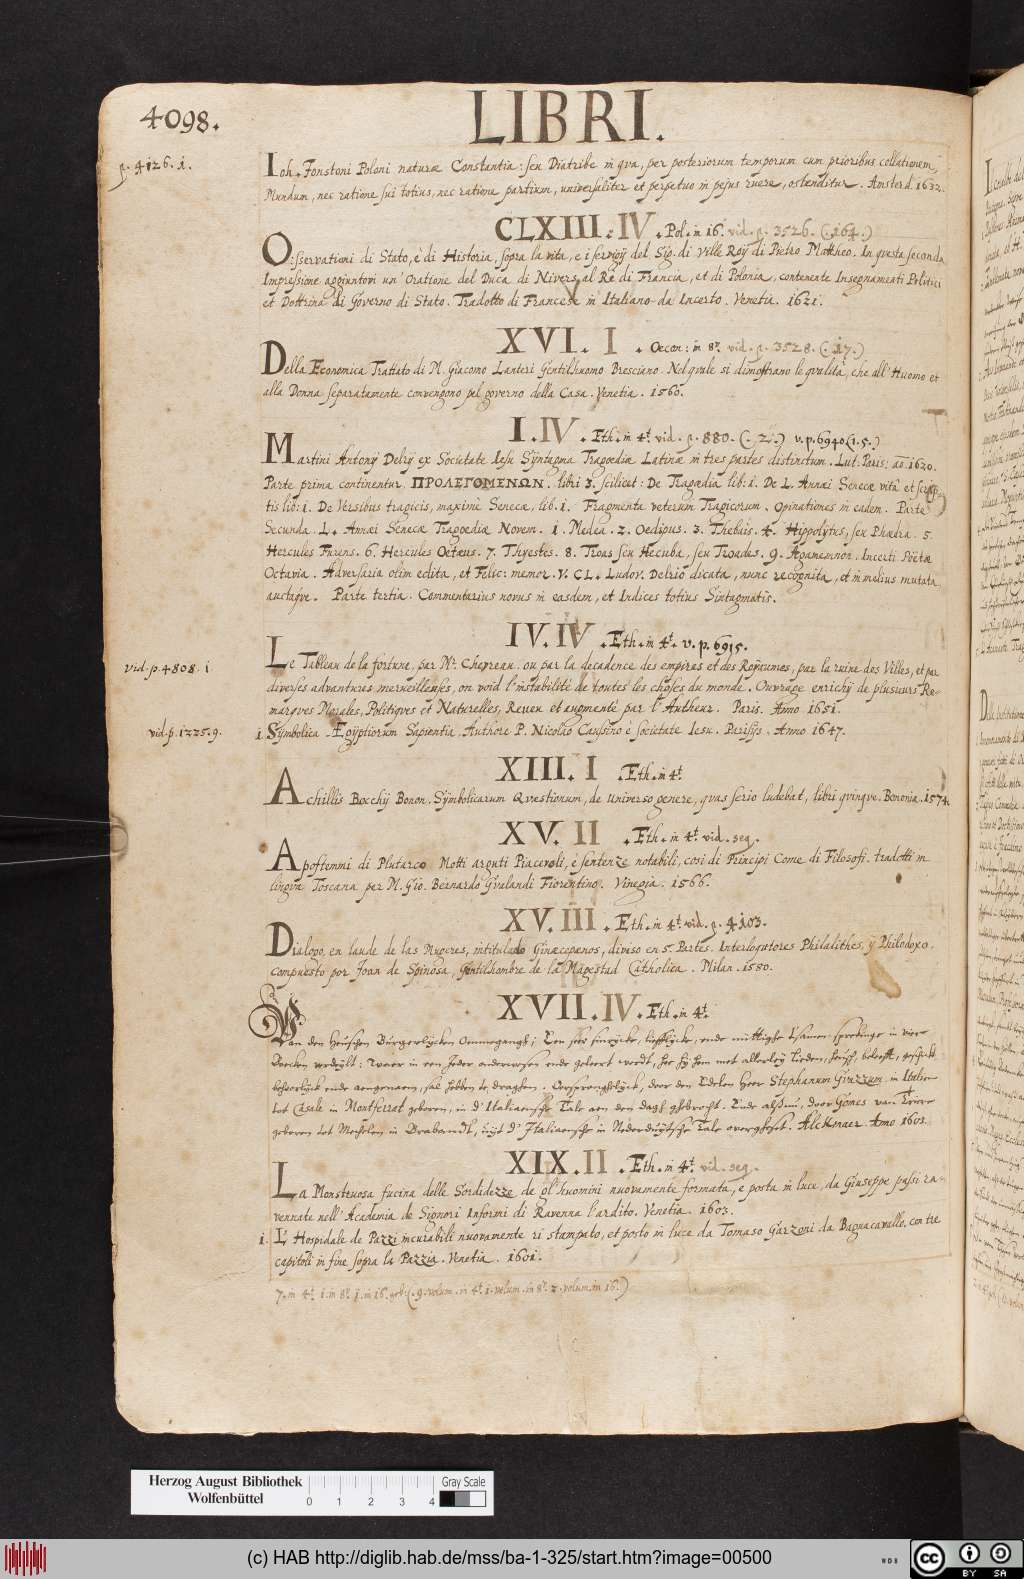 4098.
LIBRI.
p. 4126. i.
Ioh. Jonstoni Poloni naturæ Constantia: seu Diatribe in qua, per posteriorum temporum cum prioribus collationem,
Mundum, nec ratione sui totius, nec ratione partium, universaliter et perpetuo in pejus ruere, ostenditur. Amsterd. 1632.
CLXIII. IV. Pol. in 16. vid. p. 3526. (.164.)
Osservationi di Stato, è di Historia, sopra la vita, e i servigij del Sig. di Ville Roÿ di Pietro Mattheo. In questa seconda
Impressione aggiuntovi un' Oratione del Duca di Nivers al Rè di Francia, et di Polonia, contenente Insegnamenti Politici
et Dottrina di Governo di Stato. Tradotto di Francese in Italiano da Incerto. Venetia. 1621.
XVI. I. Oecon: in 8º. vid. p. 3528. (.17.)
Della Economica Trattato di M. Giacomo Lanteri Gentilhuomo Bresciano. Nel quale si dimostrano le qualità, che all' Huomo et
alla Donna separatamente convengono pel governo della Casa. Venetia. 1560.
I. IV. Eth. in 4º. vid. p. 880. (. 2.) v. p. 6940 (1.5.)
Martini Antonij Delrij ex Societate Iesu Syntagma Tragoediæ Latinæ in tres partes distinctum. Lut. Paris: ao. 1620.
Parte prima continentur. ΠΡΟΛΕΓΟΜΕΝΩΝ. libri 3. scilicet: De Tragœdia lib: i. De L. Annæi Senecæ vitâ et scrip-
tis lib: i. De Versibus tragicis, maximè Senecæ, lib. i. Fragmenta veterum Tragicorum. Opinationes in eadem. Parte
Secunda. L. Annæi Senecæ Tragœdiæ Novem. 1. Medea. 2. Oedipus. 3. Thebais. 4. Hippolytus, seu Phædra. 5.
Hercules Furens. 6. Hercules Oetæus. 7. Thyestes. 8. Troas seu Hecuba, seu Troades. 9. Agamemnon. Incerti Pöetæ
Octavia. Adversaria olim edita, et Felic: memor. V. CL. Ludov. Delrio dicata, nunc recognita, et in melius mutata,
auctaque. Parte tertia. Commentarius novus in easdem, et Indices totius Sintagmatis.
IV. IV. Eth. in 4º. v. p. 6915.
vid. p. 4808. i
Le Tableau de la fortune, par Mr. Chevreau. ou par la decadence des empires et des Royaumes, par la ruine des Villes, et par
diverses advantures merveilleuses, on void l'instabilité de toutes les choses du monde. Ouvrage enrichy de plusieurs Re-
marques Morales, Politiques et Naturelles, Reveu et augmenté par l'Autheur. Paris. Anno 1651.
vid. p. 1225. 9.
i. Symbolica Ægÿptiorum Sapientia. Authore P. Nicolao Caussino è societate Iesu. Parisijs. Anno 1647.
XIII. I. Eth. in 4º.
Achillis Bocchij Bonon. Symbolicarum Quæstionum, de universo genere, quas serio ludebat, libri quinque. Bononiæ. 1574.
XV. II. Eth. in 4º. vid. seq.
Apoftemmi di Plutarco Motti arguti Piacevoli, e sentenze notabili, così di Principi Come di Filosofi. tradotti in
lingua Toscana per M. Gio. Bernardo Gualandi Fiorentino. Vinegia. 1566.
XV. III. Eth. in 4º. vid. p. 4103.
Dialogo en laude de las Mugeres, intitulado Ginæcepænos, diviso en 5. Partes. Interlogutores Philalithes, y Philodoxo.
compuesto por Ioan de Spinosa, Gentilhombre de la Magestad Catholica. Milan. 1580.
XVII. IV. Eth. in 4º.
Van den heuschen Burgerlycken Ommegangh; Een seer sinrijcke, lieffelijcke, ende nuttighe t'samen-sprekinge in vier
Boecken verdeijlt: Waer in een Ieder onderwesen ende geleert wordt, hoe hij hem met allerley Lieden, heusch, beleefft, geschickt
behoorlyck ende aengenaem, sal hebben te draghen. Oorspronghelijck, door den Edelen Heer Stephanum Guazzum in Italien
tot Casale in Montferrat geboren, in d' Italiaensche Tale aen den dagh ghebrocht. Ende alsnu, door Gomes van Triere
geboren tot Mechelen in Brabandt, uijt d' Italiaensche in Nederduijtsche Tale overgheset. Alckmaer. Anno 1603.
XIX. II. Eth. in 4º. vid. seq.
La Monstruosa fucina delle Sordidezze de gl'huomini nuovamente formata, e posta in luce, da Giuseppe passi ra-
vennate nell' Academia de Signori Informi di Ravenna l'ardito. Venetia. 1603.
i. L' Hospidale de Pazzi incurabili nuovamente ristampato, et posto in luce da Tomaso Garzoni da Bagnacavallo, con tre
capitoli in fine sopra la Pazzia. Venetia. 1601.
7. in 4º. i. in 8º. i. in 16º. geb: (. 9. volum. in 4º. i. volum. in 8º. 2. volum. in 16º.)
Herzog August Bibliothek
Wolfenbüttel
0 1 2 3 4
Gray Scale
(c) HAB http://diglib.hab.de/mss/ba-1-325/start.htm?image=00500
WDB
cc BY SA